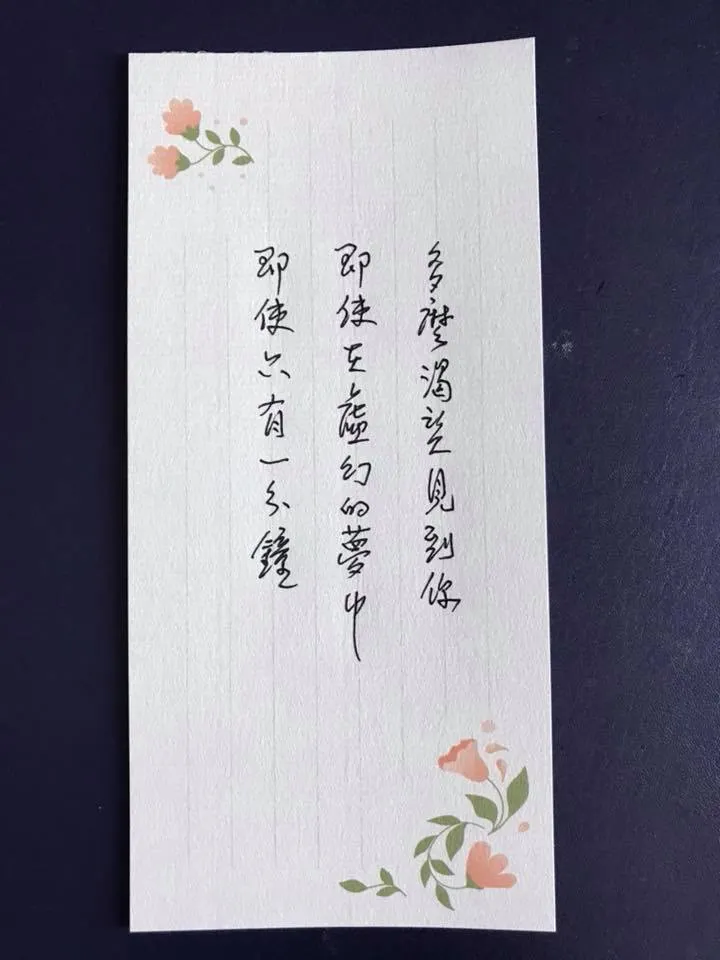 多麼渴望見到你
即使在虛幻的夢中
即使只有一分鐘